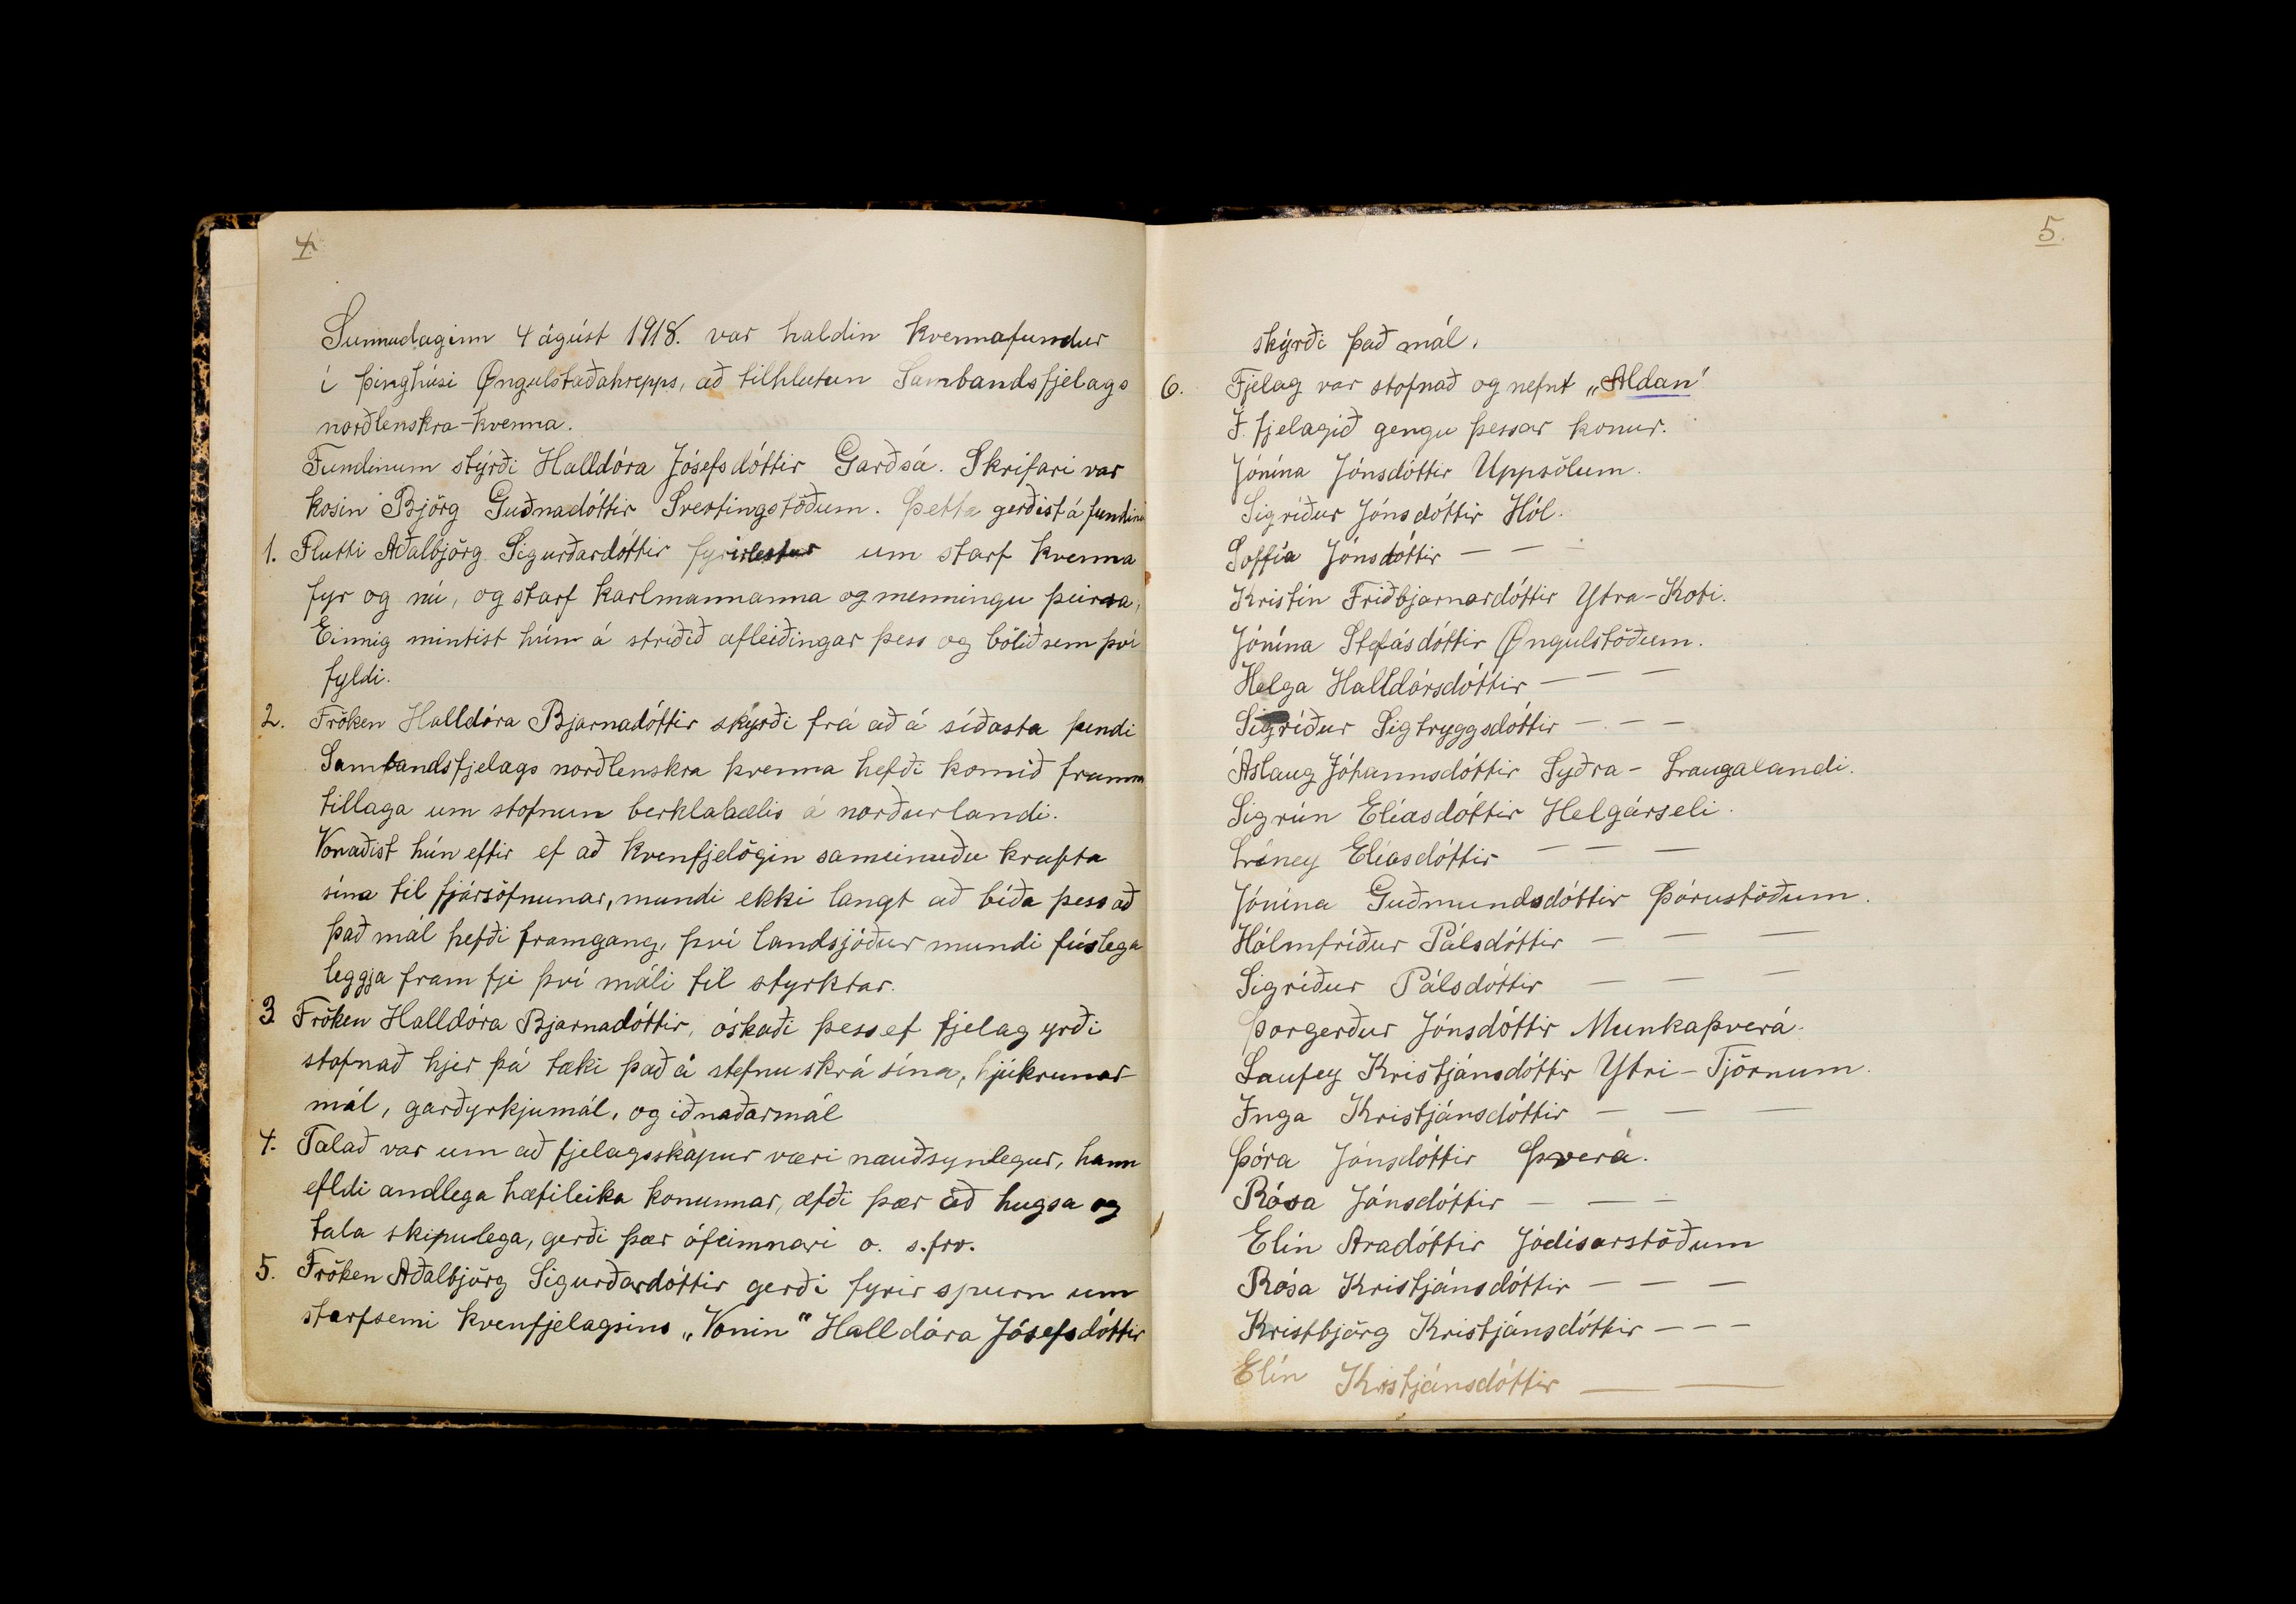 4.
Sunnudaginn 4 ágúst 1918. var haldin kvennafundur
í þinghúsi Öngulstaðahrepps, að tilhlutun Sambandsfjelags
norðlenskra-kvenna.
Fundinum stýrði Halldóra Jósefsdóttir Garðsá. Skrifari var
kosin Björg Guðnadóttir Svertingstöðum. Þetta gerðist á fundinum
1. Flutti Aðalbjörg Sigurðardóttir fyrirlestur um starf kvenna
fyr og nú, og starf karlmannanna og menningu þeirra,
Einnig mintist hún á stríðið afleiðingar þess og bölið sem því
fyldi.
2. Fröken Halldóra Bjarnadóttir skýrði frá að á síðasta fundi
Sambandsfjelags norðlenskra kvenna hefði komið framm
tillaga um stofnun berklahælis á norðurlandi.
Vonaðist hún eftir ef að kvenfjelögin sameinuðu krafta
sína til fjársöfnunar, mundi ekki langt að bíða þess að
það mál hefði framgang, því landsjóður mundi fúslega
leggja fram fje því máli til styrktar.
3 Fröken Halldóra Bjarnadóttir, óskaði þess ef fjelag yrði
stofnað hjer þá tæki það á stefnuskrá sína, hjúkrunar-
mál, garðyrkjumál, og iðnaðarmál
4. Talað var um að fjelagsskapur væri nauðsynlegur, hann
efldi andlega hæfileika konunnar, æfði þær að hugsa og
tala skipulega, gerði þær ófeimnari o. s. frv.
5. Fröken Aðalbjörg Sigurðardóttir gerði fyrir spurn um
starfsemi kvenfjelagsins „Vonin“ Halldóra Jósefsdóttir
5.
skýrði það mál.
6. Fjelag var stofnað og nefnt „Aldan“
Í fjelagið gengu þessar konur.
Jónína Jónsdóttir Uppsölum.
Sigríður Jónsdóttir Hól.
Soffía Jónsdóttir — — —
Kristín Friðbjarnardóttir Ytra-Koti.
Jónína Stefásdóttir Öngulstöðum.
Helga Halldórsdóttir — — —
Sigríður Sigtryggsdóttir — — —
Áslaug Jóhannsdóttir Syðra-Laugalandi.
Sigrún Elíasdóttir Helgárseli.
Elíasdóttir — — —
Jónína Guðmundsdóttir Þórustöðum.
Hólmfríður Pálsdóttir — — —
Sigríður Pálsdóttir — — —
Þorgerður Jónsdóttir Munkaþverá.
Laufey Kristjánsdóttir Ytri-Tjörnum.
Inga Kristjánsdóttir — — —
Þóra Jónsdóttir Þverá.
Rósa Jónsdóttir — — —
Elín Aradóttir Jódísarstöðum
Rósa Kristjánsdóttir — — —
Kristbjörg Kristjánsdóttir — — —
Elín Kristjánsdóttir — —